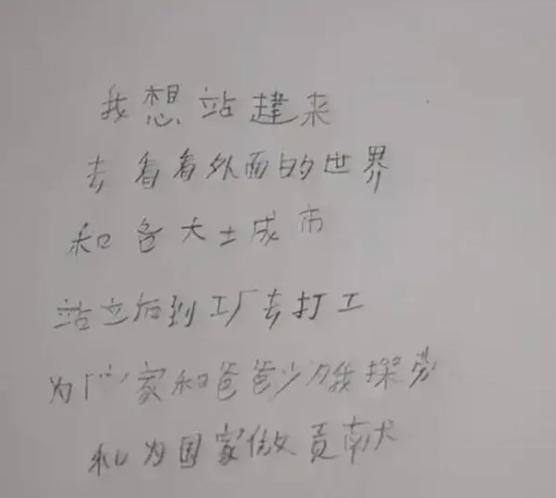 我想站起来
去看看外面的世界
和各大土成市
站立后到工厂去打工
为门家和爸爸少为我操劳
和为国家做贡献